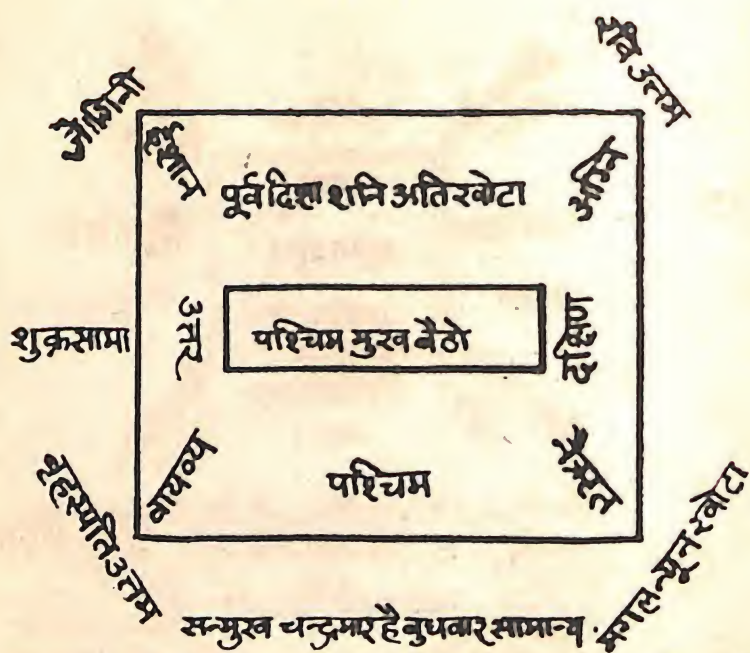 जोगिनी
रवि उत्तम
ईशान
पूर्व दिशा शनि अति खोटा
अग्नि
शुक्र सामा
उत्तर
पश्चिम मुख बैठो
दक्षिण
वायव्य
पश्चिम
नैऋत
बृहस्पति उत्तम
सन्मुख चन्द्रमा रहै बुधवार सामान्य .
मंगल न्यून खोटा